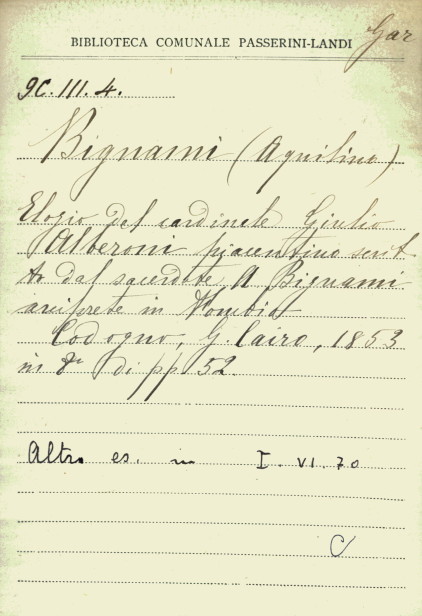 Gar
BIBLIOTECA COMUNALE PASSERINI-LANDI
9C.III.4.
Bignami (Aquilino)
Elogio del cardinele Giulio
Alberoni piacentino scrit
to dal sacerdote A Bignami
arciprete in Fombio
Codogno, G. Cairo, 1853
in 8º di pp 52.
Altro es. in I. VI. 70
C